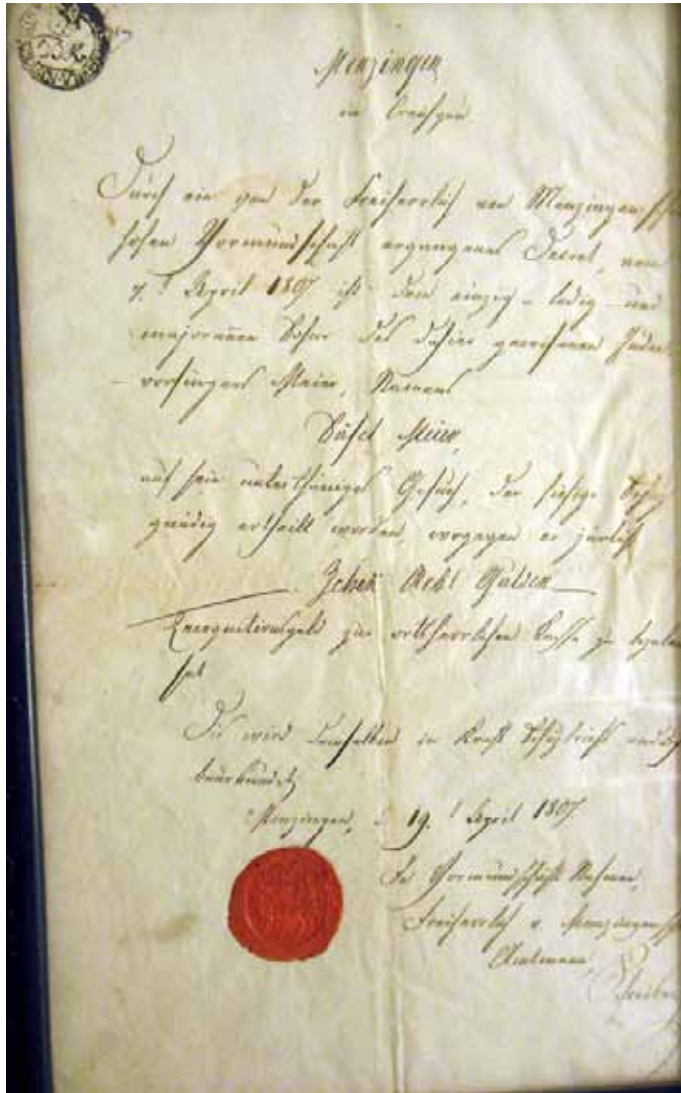 Menzingen
im Craichgau
Durch ein von der Freiherrlich von Menzingen
hohen Vormundschaft ergangenes Decret, vom
7. t April 1807 ist dem einzig - ledig - und
majorennen Sohne des dahier gewesenen Juden
vorsingers Meier, Namens
Süsel Meier,
auf sein unterthäniges Gesuch, der hiesige Schuz
gnädig ertheilt worden, wogegen er järlich
Zehen Acht Gulden
Recognitionsgeld zur ortsherrlichen Kasse zu bezalen
hat
Dis wird demselben in Kraft Schuzbriefs
beurkundet
Menzingen, d. 19. t April 1807
In Vormundschafts Namen,
Freiherrlich v. Menzingen
Amtmann,